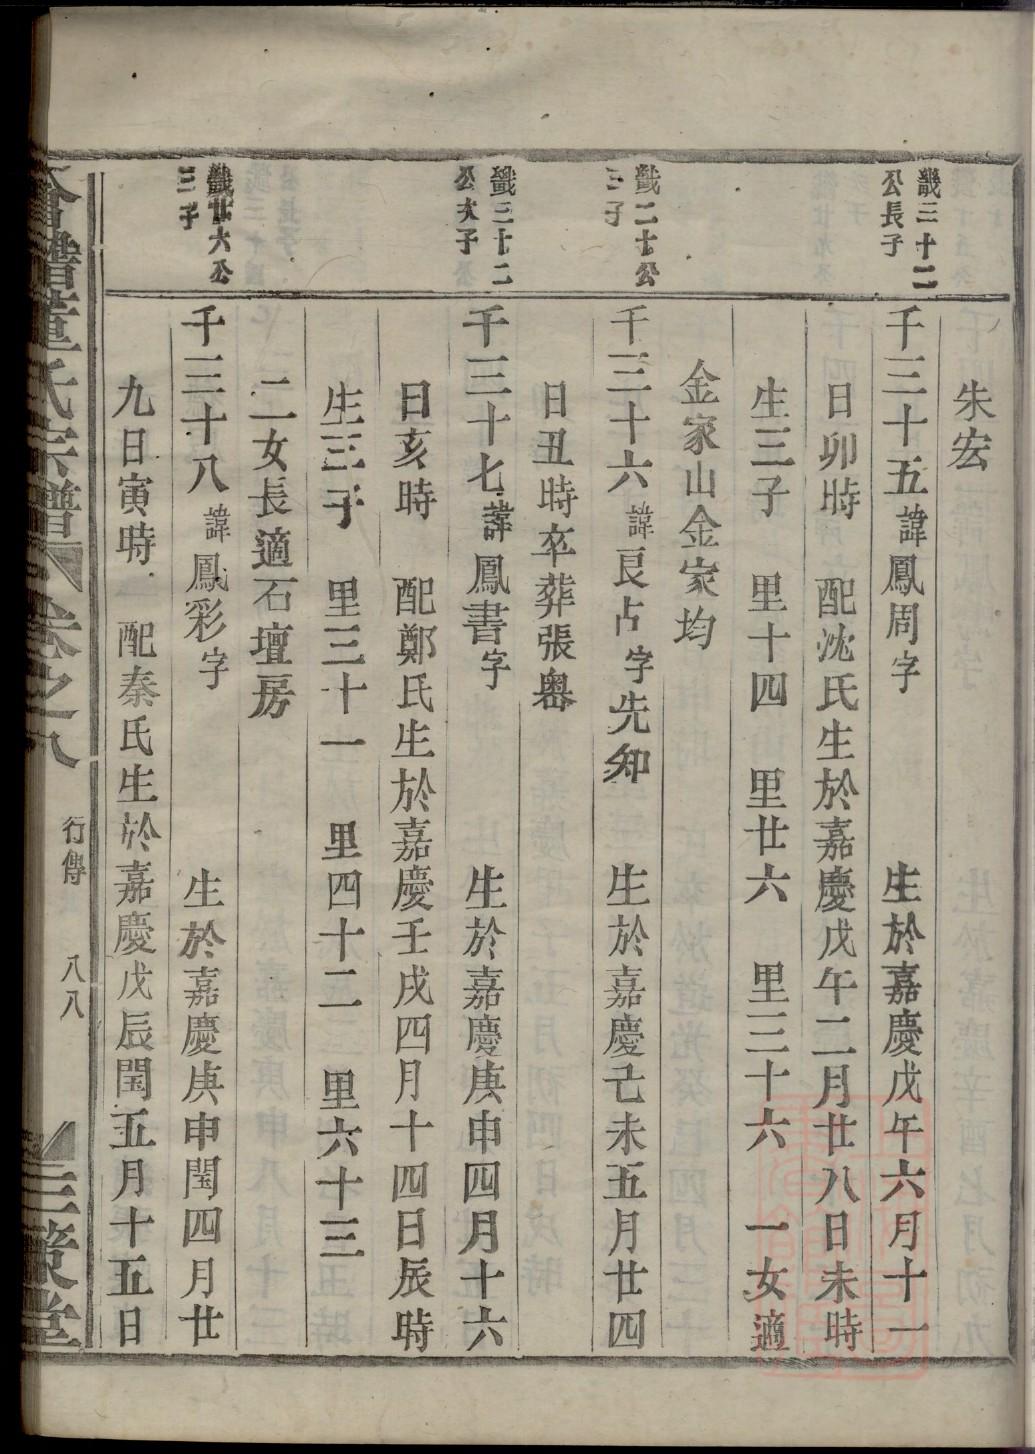 朱宏
畿三十二
公長子
千三十五諱鳳周字 生於嘉慶戊午六月十一
日卯時 配沈氏生於嘉慶戊午二月廿八日未時
生三子 里十四 里廿六 里三十六 一女適
金家山金家均
畿二十公
三子
千三十六諱良占字先知 生於嘉慶己未五月廿四
日丑時卒葬張嶴
畿三十二
公次子
千三十七諱鳳書字 生於嘉慶庚申四月十六
日亥時 配鄭氏生於嘉慶壬戌四月十四日辰時
生三子 里三十一 里四十二 里六十三
二女長適石壇房
畿廿六公
三子
千三十八諱鳳彩字 生於嘉慶庚申閏四月廿
九日寅時 配秦氏生於嘉慶戊辰閏五月十五日
董氏宗譜 卷之八 行傳 八八 三策堂